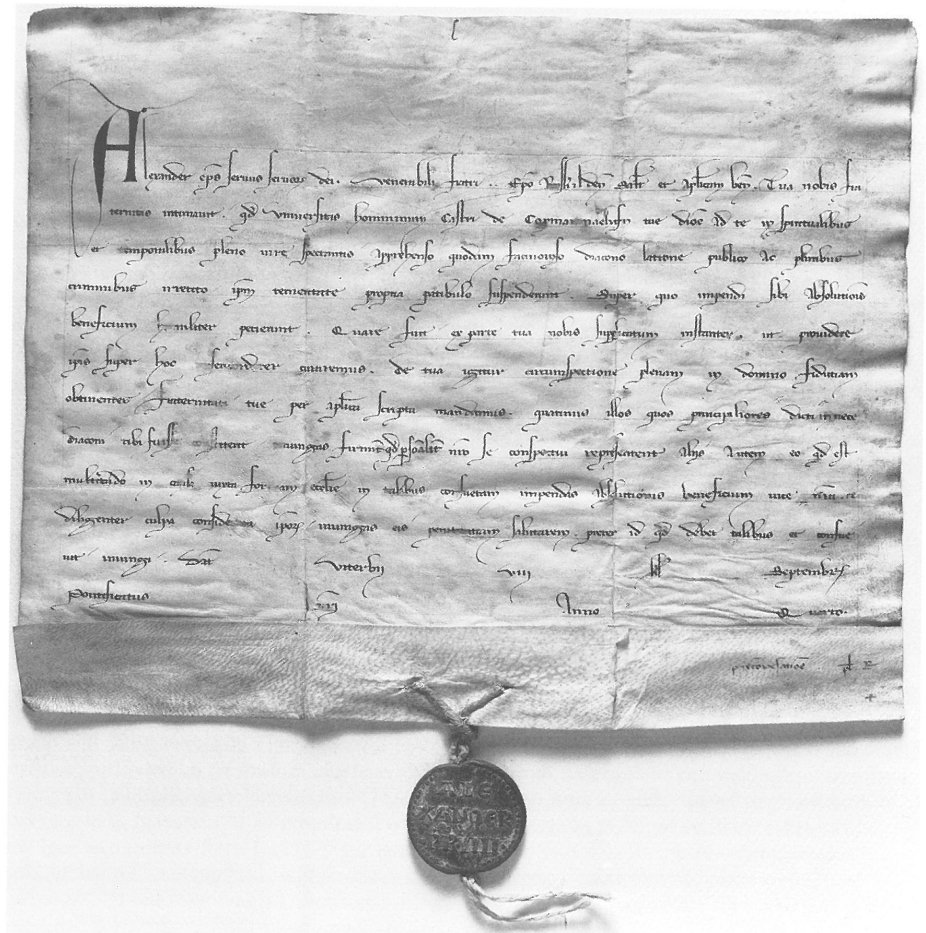 Alexander ep̄s seruus seruoꝝ dei. Venerabili fratri .. Ep̄o Roskilden̄ Sal̄t et ap̄licam ben̄. Tua nobis fra
ternitas intimauit. qd̄ vniuersitas hominum Castri de tue dioc̄ ad te in spiritualibus
et temporalibus pleno iure spectantis apprehenso quodam facinoroso diacono latrone publico ac pluribus
criminibus irretito ip̄m temeritate propria patibulo suspenderunt. Super quo impendi sibi absolutionis
beneficium humiliter petierunt. Quare fuit ex parte tua nobis supplicatum instanter. ut prouidere
ip̄is super hoc curaremus. de tua igitur circumspectione plenam in domino fiduciam
obtinentes fraternitati tue per ap̄lica scripta mandamus. quatinus illos quos principaliores dicti in nece
diaconi tibi fuisse constiterit iniungas firmit̄ qd̄ ꝑsonalit̄ nr̄o se conspectui representent Aliis autem eo qd̄ est
multitudo in causa iuxta formam eccl̄ie in talibus consuetam impendas absolutionis beneficium uice nr̄a. et
diligenter culpa considerata ip̄oꝝ iniungas eis penitentiam salutarem. preter id qd̄ debet talibus et consue
uit iniungi. Dat̄ Viterbii VIII kl̄ Septembr̄
Pontificatus nr̄i Anno Quarto.
ALE
XANDER
PP IIII